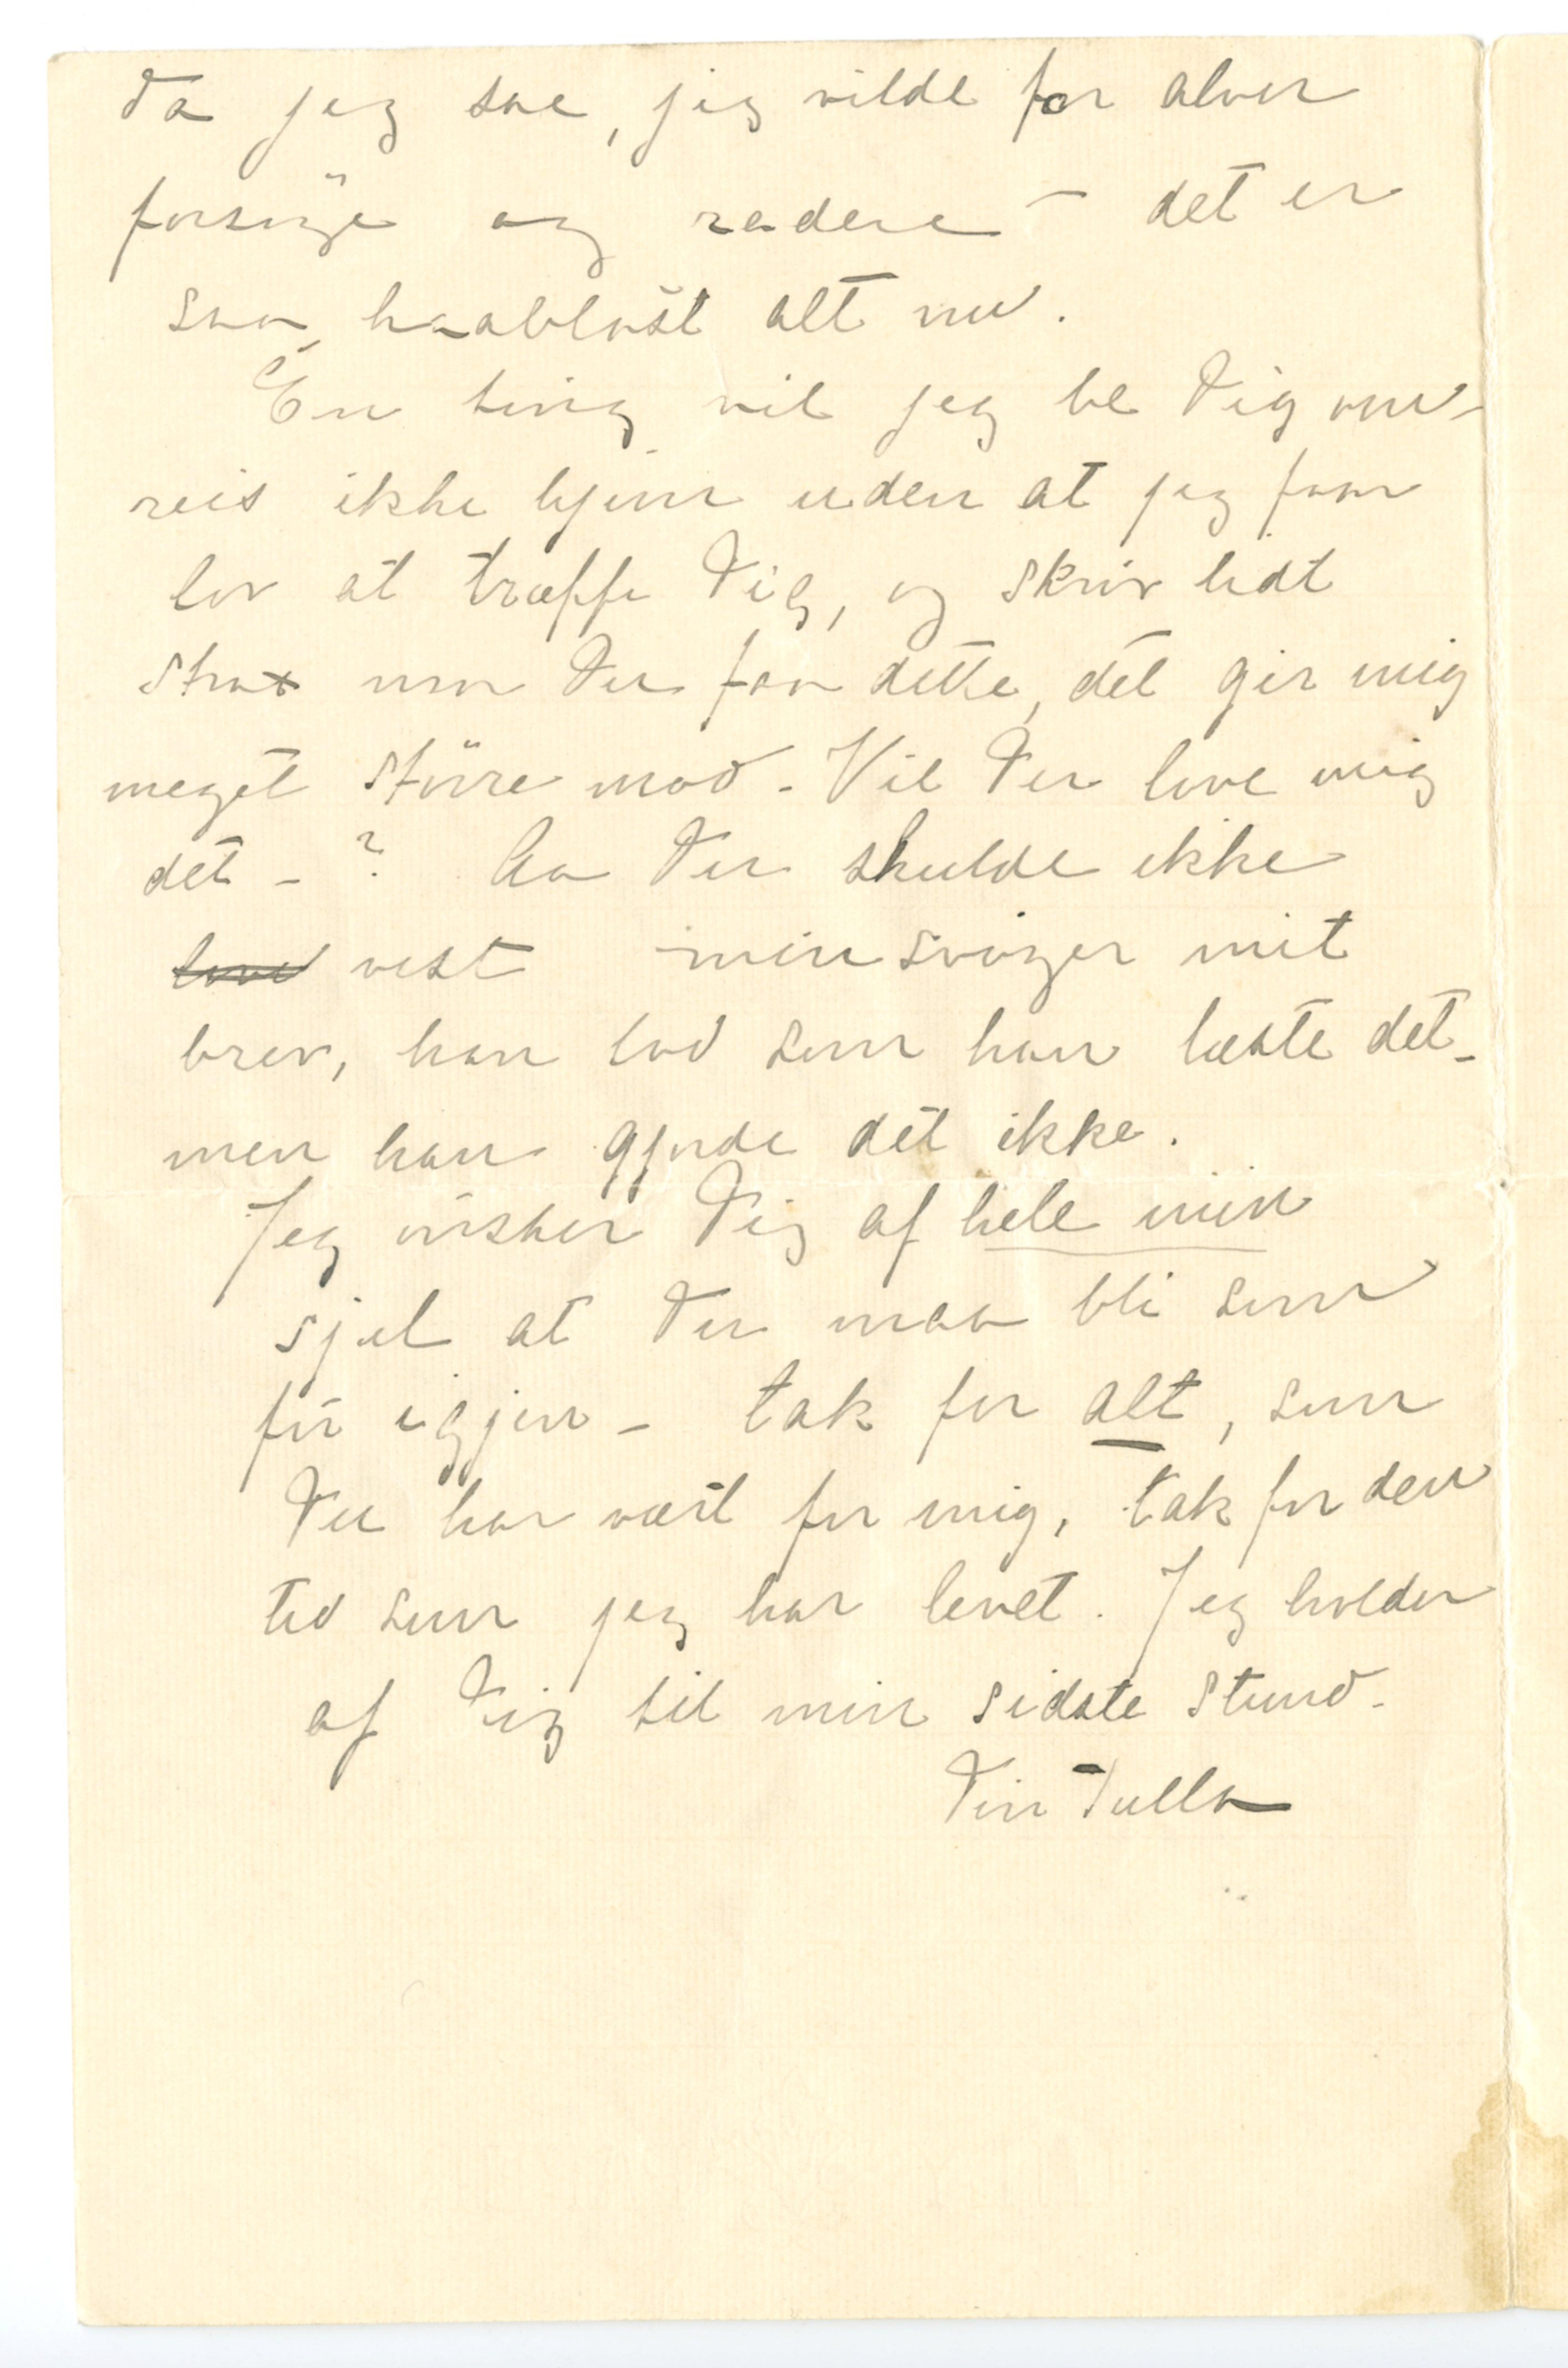 da jeg sae, jeg vilde for alver
forsöge og radere – det er
saa haablöst alt nu.
En ting vil jeg be Dig om –
reis ikke hjem uden at jeg faar
lov at træffe Dig, og skriv lidt
strax naar Du faar dette, det gir mig
meget större mod – Vil Du love mig
det – ? Aa Du skulde ikke
~~lovet~~ vist min svoger mit
brev, han lod som han læste det –
men han gjorde det ikke.
Jeg önsker Dig af hele min
sjæl at Du maa bli som
för igjen – tak for alt, som
Du har vært for mig, tak for den
tid som jeg har levet. Jeg holder
af Dig til min sidste stund –
Din Tulla